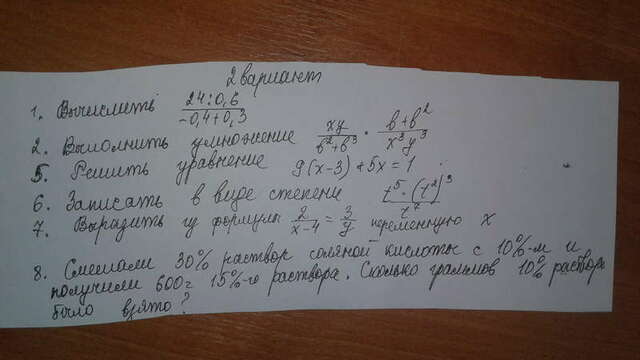 2 вариант
1. Вычислить 24:0,6 / -0,4+0,3
2. Выполнить умножение xy / b²+b³ · b+b² / x³y³
5. Решить уравнение 9(x-3)+5x=1
6. Записать в виде степени t⁵·(t²)³ / t⁴
7. Выразить из формулы 2 / x-4 = 3 / y переменную x
8. Смешали 30% раствор соляной кислоты с 10%-м и
получили 600г 15%-го раствора. Сколько граммов 10% раствора
было взято?